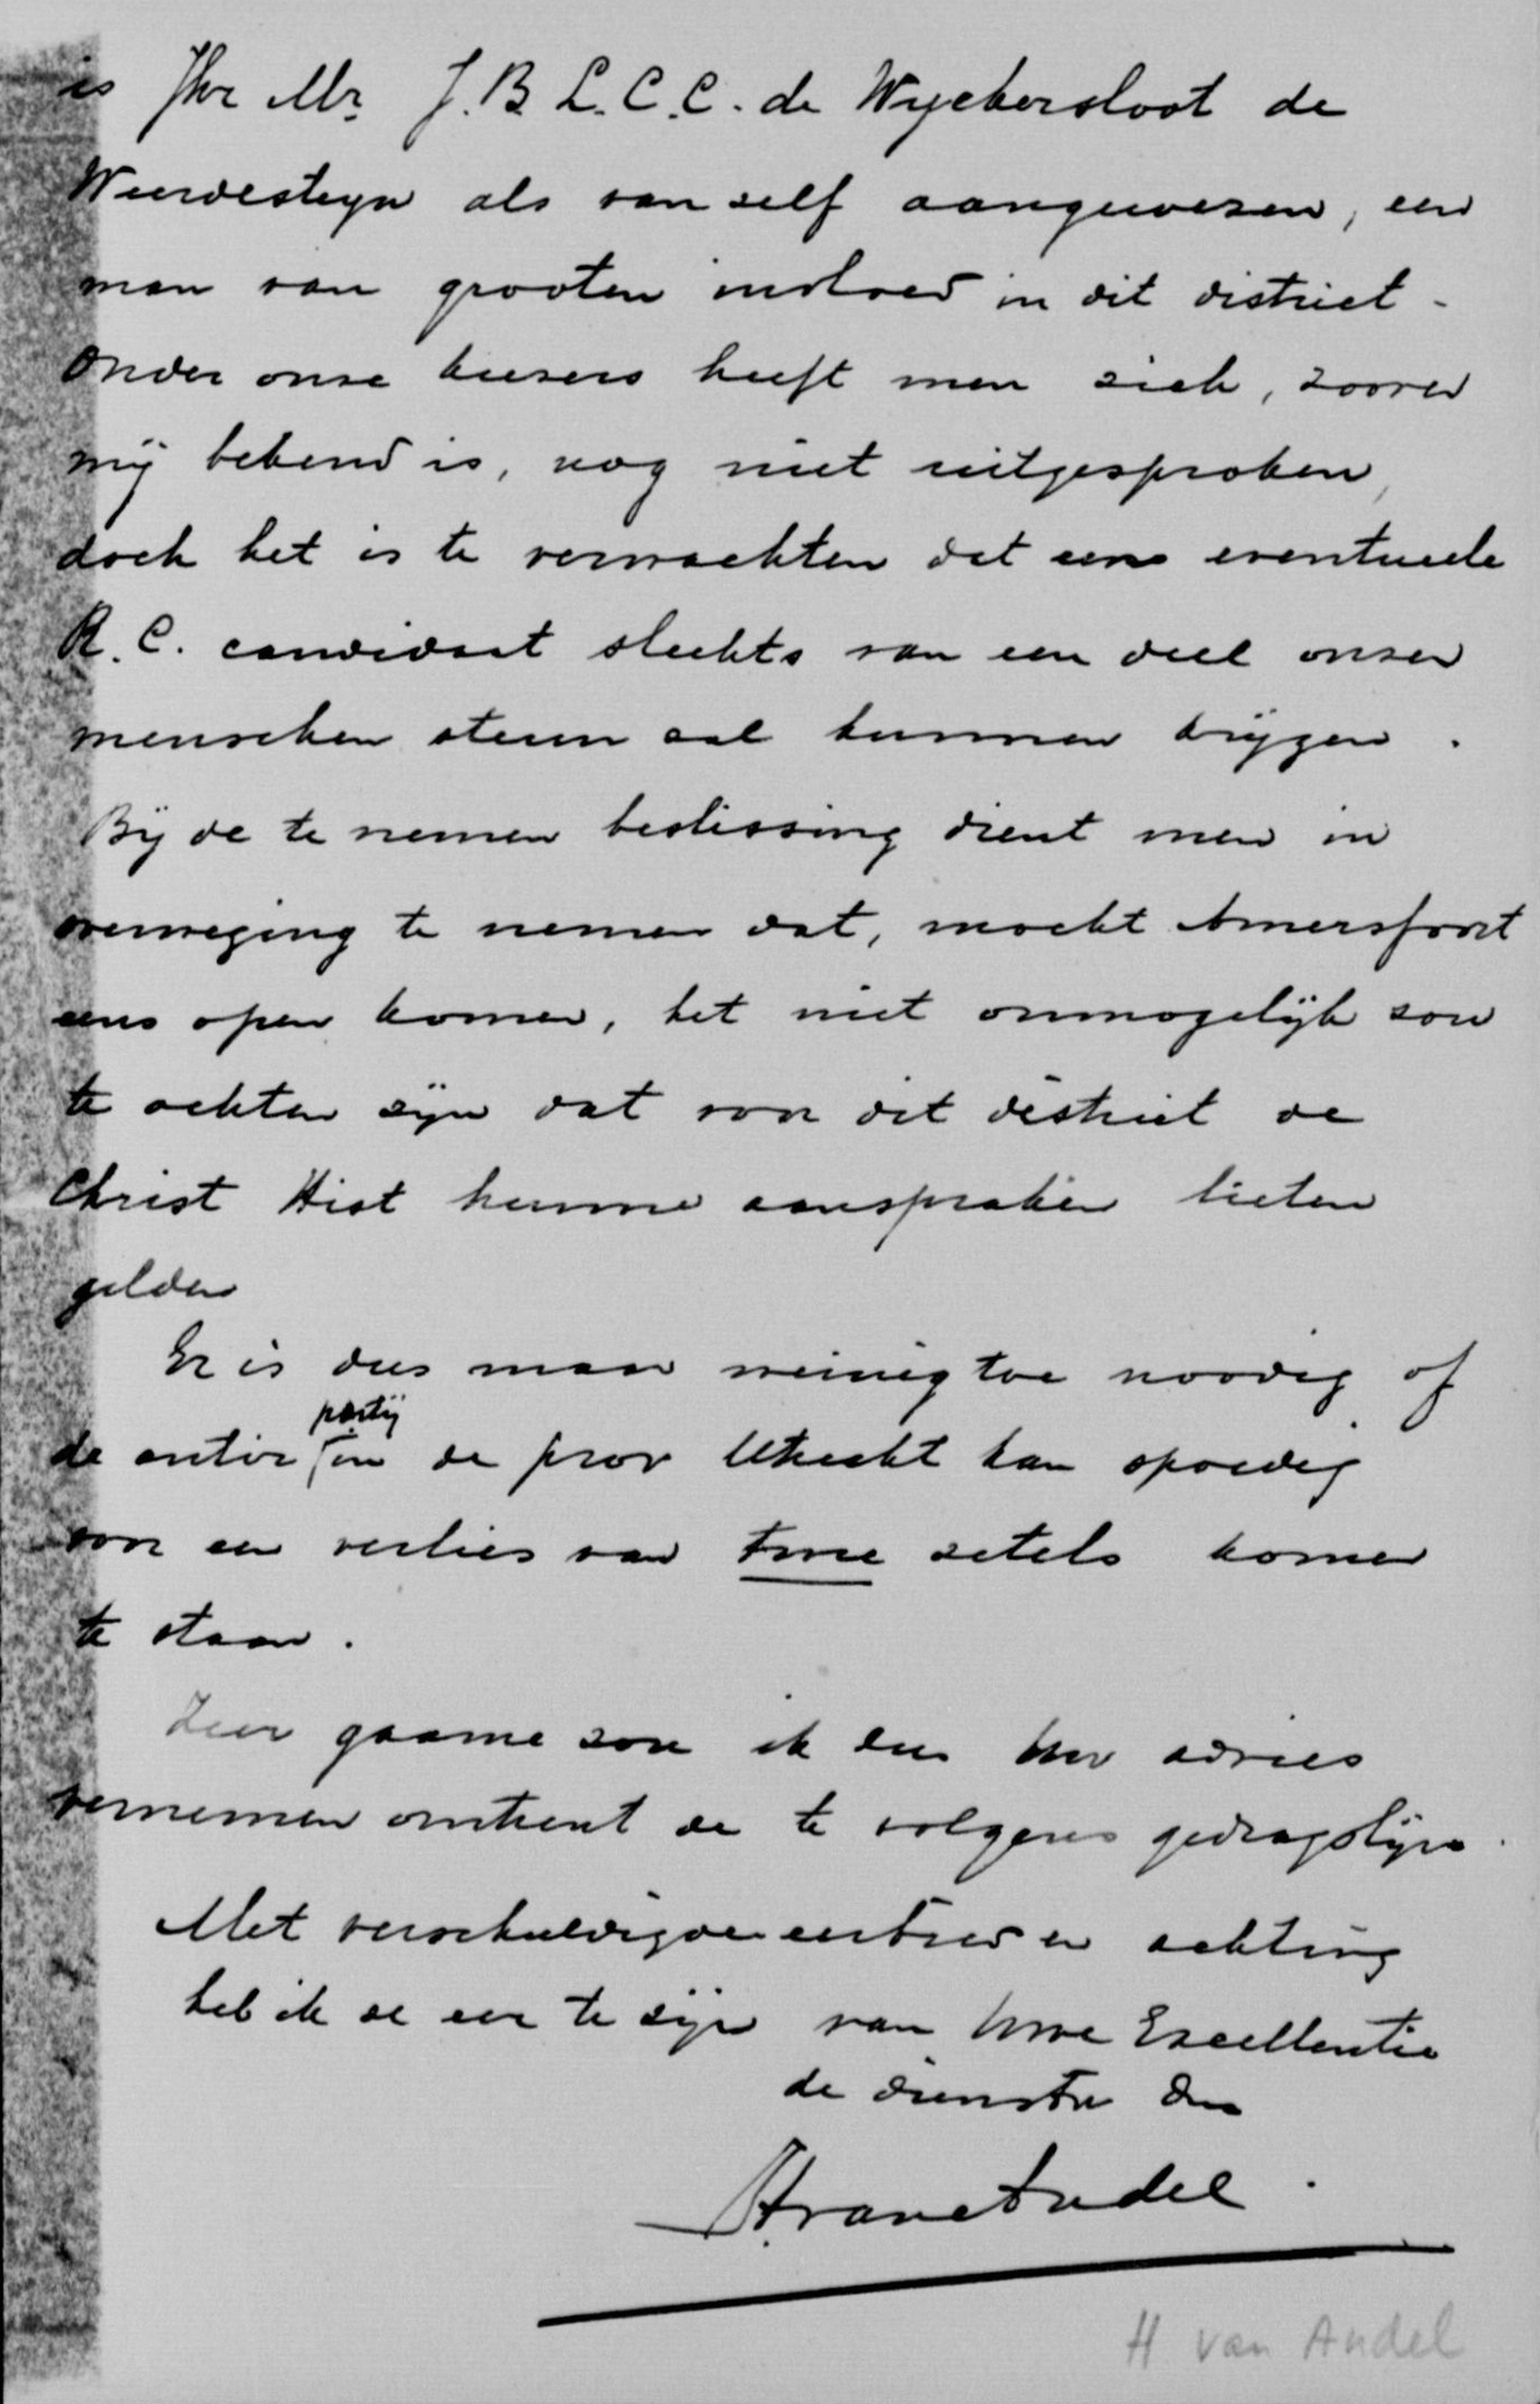 is Jhr Mr. J.B.L.C.C. de Wyckersloot de
Weerdesteyn als van self aangewezen, een
man van grooten invloed in dit district.
Onder onze kiesers heeft men zich, zoover
mij bekend is, nog niet uitgesproken,
doch het is te verwachten dat een eventueele
R.C. candidaat slechts van een deel onser
menschen steun zal kunnen krijgen.
Bij de te nemen beslissing dient men in
overweging te nemen dat, mocht Amersfoort
eens open komen, het niet onmogelijk zou
te achten zijn dat voor dit district de
Christ Hist hunne aanspraken lieten
gelden
Er is dus maar weinig toe noodig of
de antir partij in de prov Utrecht kan spoedig
voor een verlies van twee zetels komen
te staan.
Zeer gaarne zou ik dus Uw advies
vernemen omtrent de te volgens gedragslijn.
Met verschuldigde eerbied en achting
heb ik de eer te zijn van Uwe Excellentie
de dienstw Dn
H. van Andel.
H van Andel